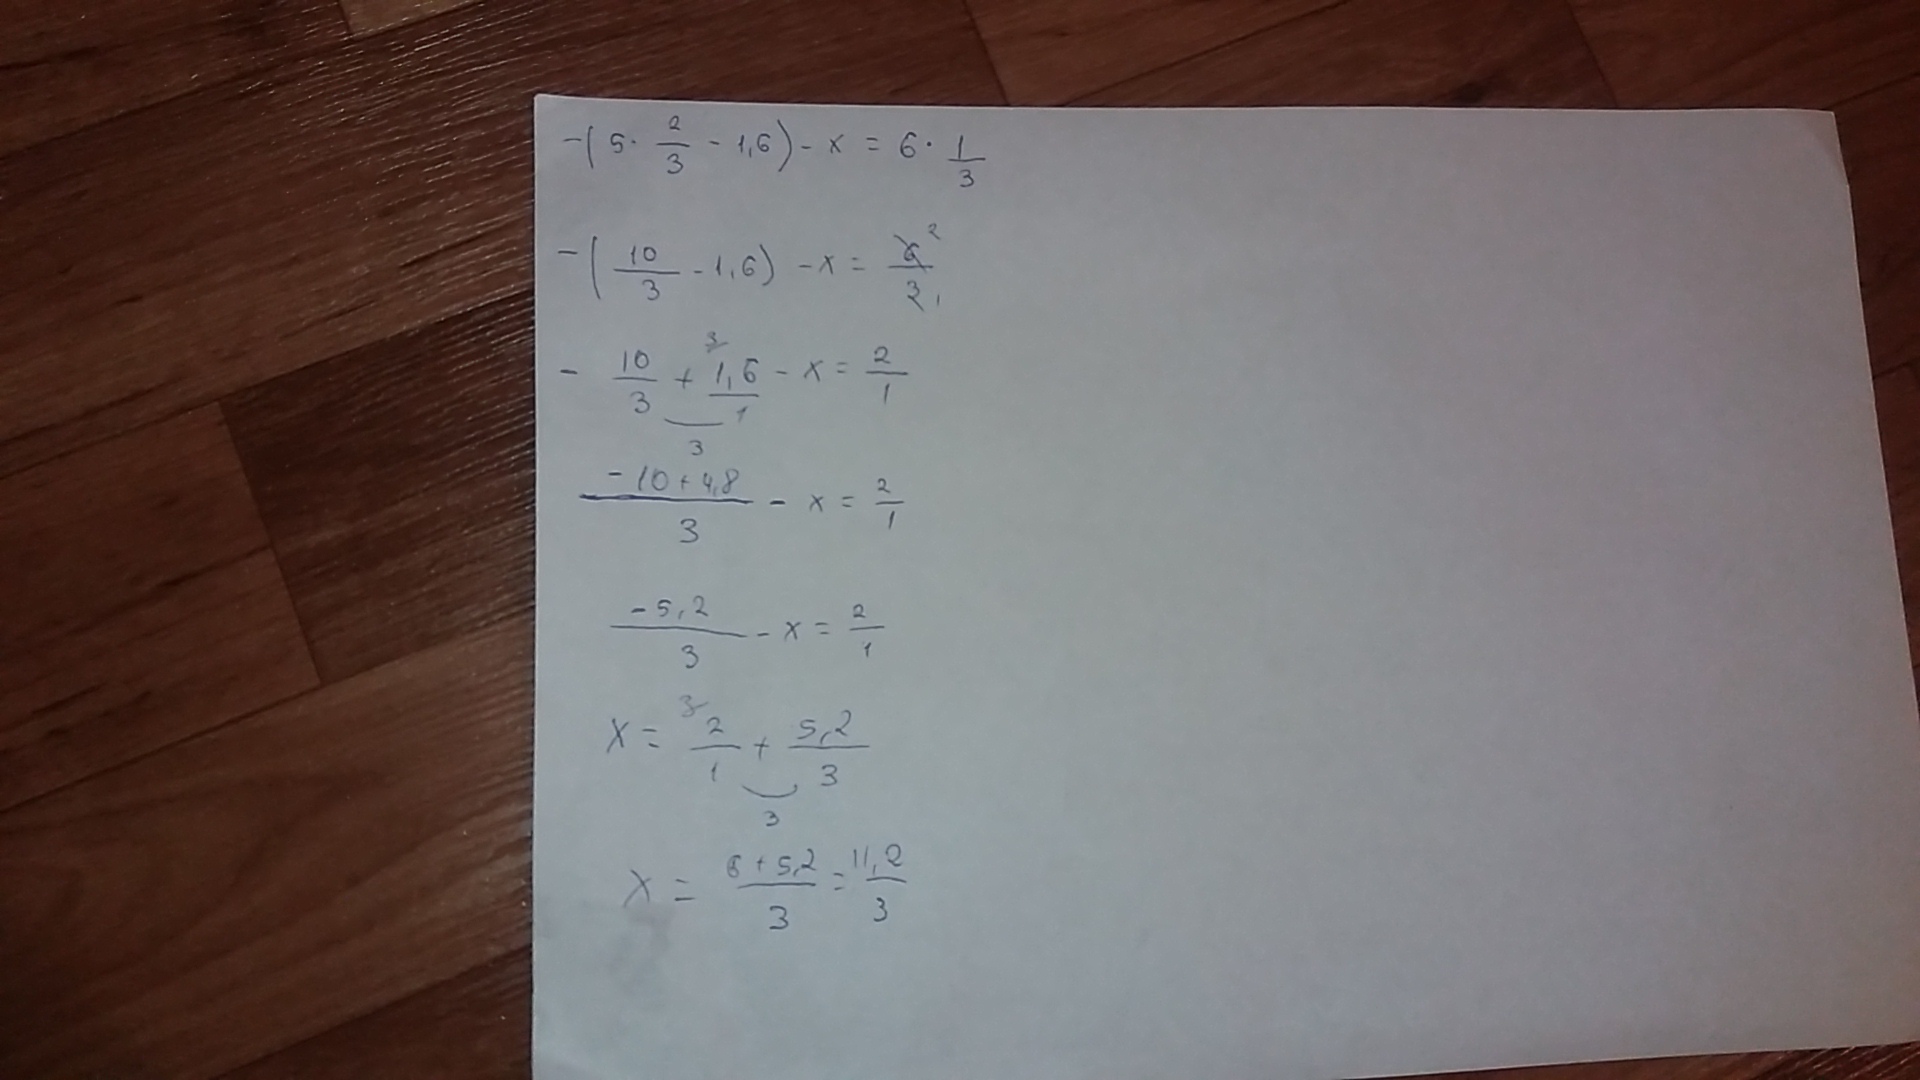 -(5·2/3 - 1,6) - x = 6·1/3
-(10/3 - 1,6) - x = 6²/3₁
- 10/3 + ³1,6/1 - x = 2/1
3
-10+4,8/3 - x = 2/1
-5,2/3 - x = 2/1
x = ³2/1 + 5,2/3
3
x = 6+5,2/3 = 11,2/3